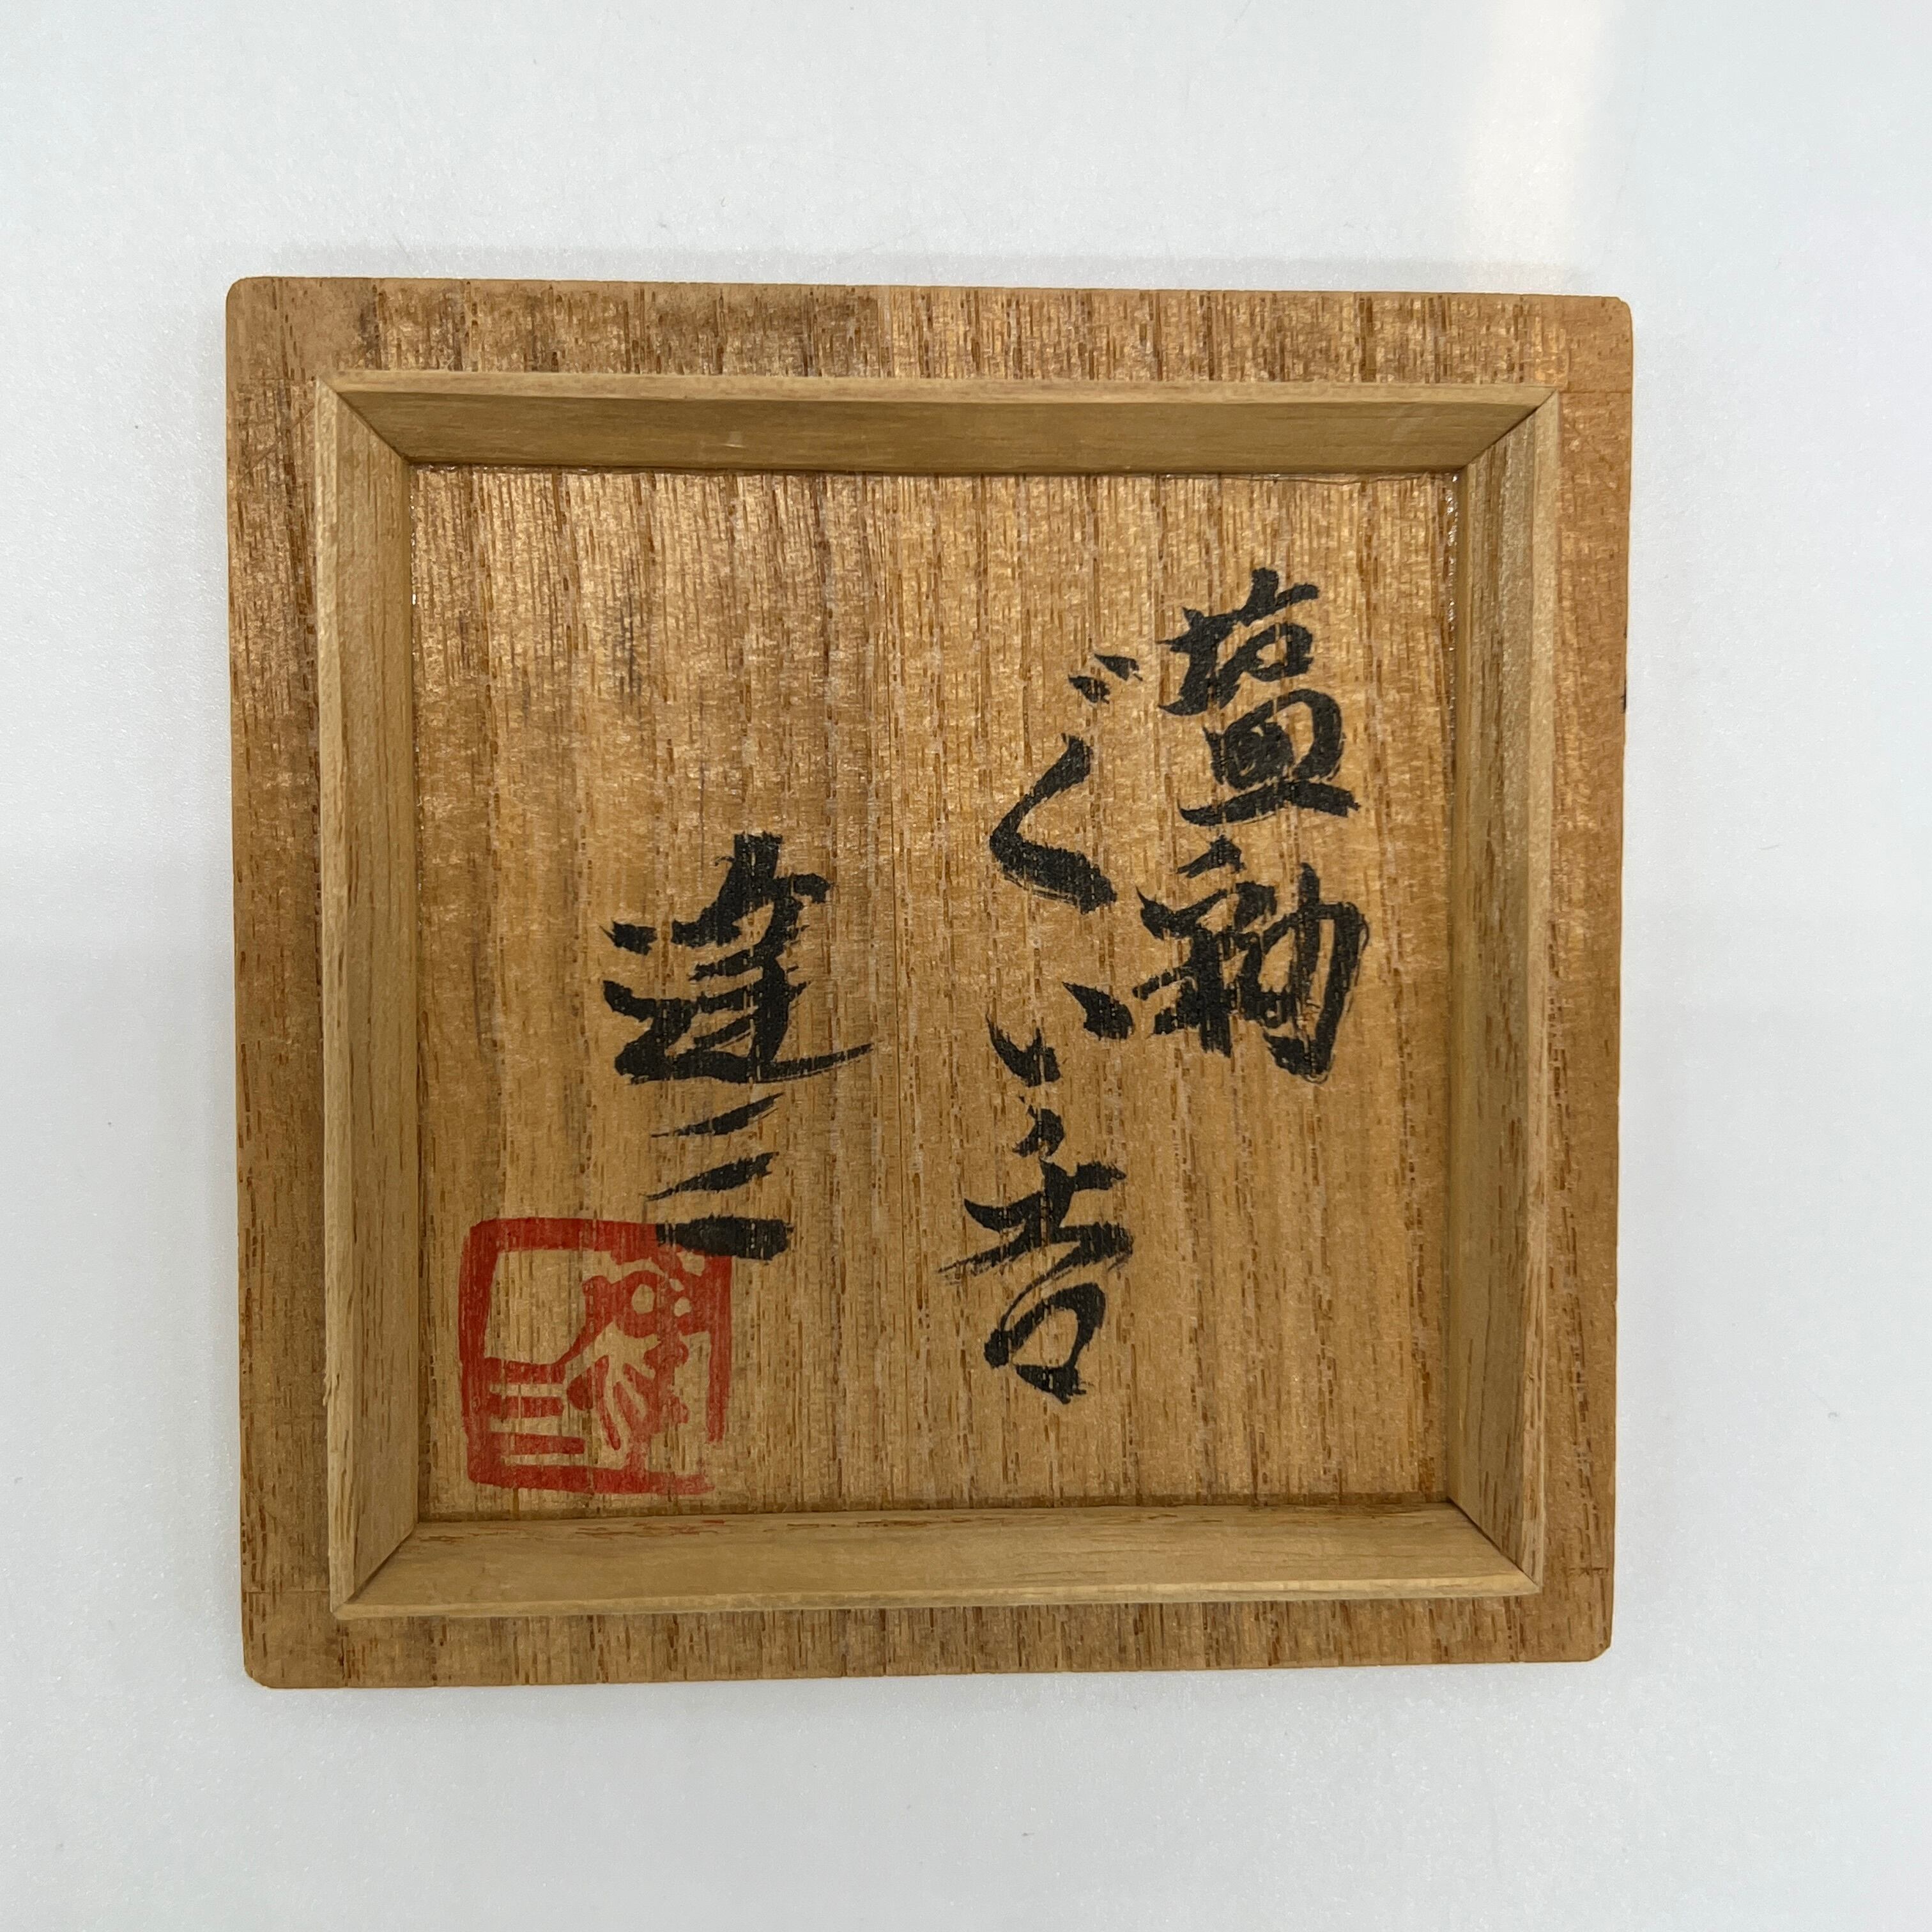 塩釉
ぐい呑
達三